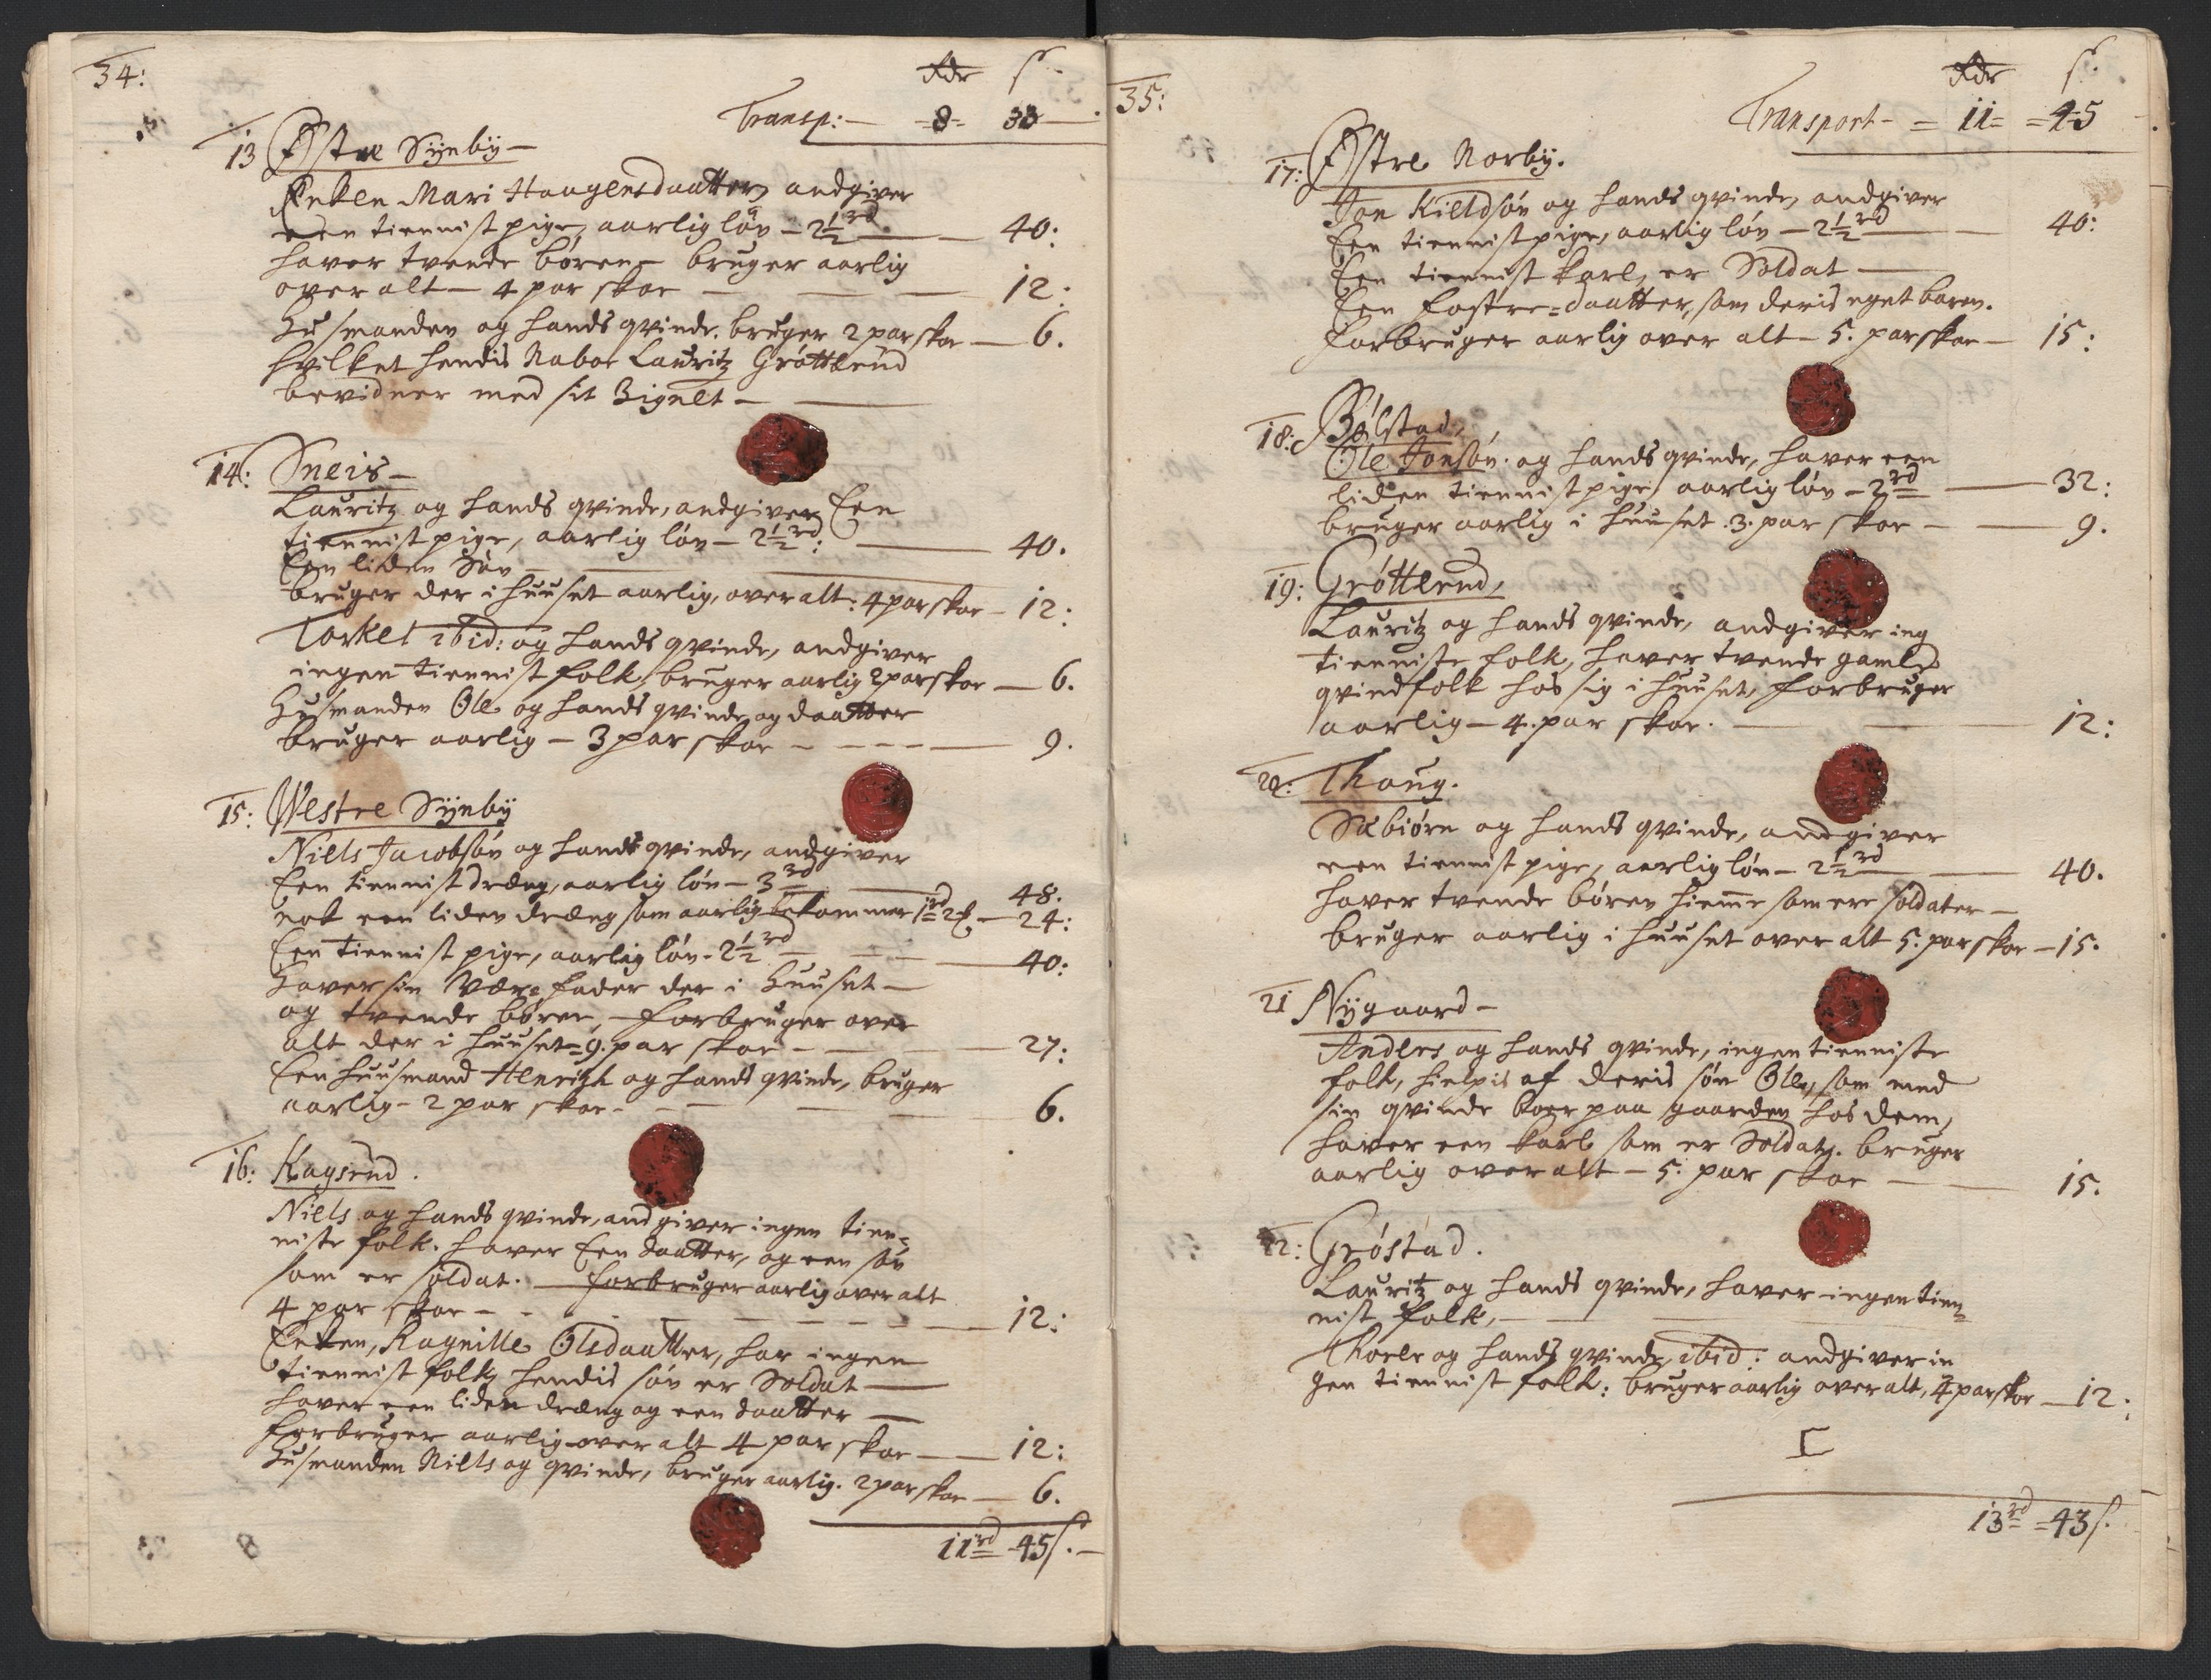 34:
Rdr ß
Transp: — 8 – 33 —
13 Østre Sÿnbÿ –
Enken Mari Haagensdaatter, andgiver
een tiennist pige, aarlig løn – 2½ rd — 40:
hafver tvende børen – bruger aarlig
ofver alt – 4 par skoe — 12:
Husmanden og hands qvinde, bruger 2 par skoe — 6.
hvilket hendis Naboe Lauritz Grøtterud
bevidner med sit Zignet –
14: Sneis –
Lauritz og hands qvinde, andgiver Een
tiennist pige, aarlig løn – 2½ rd: — 40.
Een liden Søn –
bruger der i huuset aarlig, over alt: 4 par skoe – 12:
Torkel ibid: og hands qvinde, andgiver
ingen tiennist folk, bruger aarlig 2 par skoe — 6.
Husmanden Ole og hands qvinde og daatter
bruger aarlig – 3 par skoe – – – – — 9.
15: Westre Sÿnbÿ
Niels Jacobsøn og hands qvinde, andgiver
Een tiennist dræng, aarlig løn – 3 rd — 48.
nok een liden dræng som aarlig bekommer 1 rd 2 — 24:
Een tiennist pige, aarlig løn – 2½ rd — 40:
Hafver sin Vær-fader der i Huuset –
og tvende børen, – forbruger over
alt der i huuset – 9. par skoe – — 27:
Een huusmand Henrich og hands qvinde, bruger
aarlig – 2 par skoe – — 6.
16: Kagsrud.
Niels og hands qvinde, andgiver ingen tien-
niste folk. hafver Een daatter, og een søn
som er soldat. — forbruger aarlig over alt
4 par skoe – – — 12:
Enken, Ragnille Olsdaatter, har ingen
tiennist folk, hendis søn er Soldat —
hafver een liden dræng og een daatter —
forbruger aarlig over alt 4 par skoe — 12:
Husmanden Niels og qvinde, bruger aarlig. 2 par skoe — 6.
11 rd – 45 ß. –
35:
Rdr ß.
Transport – = 11 = = 45
17: Østre Norbÿ.
Jon Kieldsøn og hands qvinde, andgiver
Een tiennist pige, aarlig løn – 2½ rd — 40:
Een tiennist karl, er Soldat —
Een fostre-daatter, som deris eget baren.
forbruger aarlig over alt – 5. par skoe – 15:
18: Bølstad,
Ole Jonsøn. og hands qvinde, hafver een
liden tiennist pige, aarlig løn – 2 rd — 32:
bruger aarlig i huuset .3. par skoe – — 9.
19: Grøtterud,
Lauritz og hands qvinde, andgiver ing
tienniste folk, hafver tvende gamle
qvindfolk hos sig i huuset, forbruger
aarlig – 4. par skoe. — 12:
20: Thoug.
Sæbiørn og hands qvinde, andgiver
een tiennist pige, aarlig løn – 2½ rd — 40.
hafver tvende børen hieme som ere soldater –
bruger aarlig i huuset over alt 5. par skoe – 15.
21 Nÿgaard –
Anders og hands qvinde, ingen tienniste
folk, hielpis af deris søn Ole, som med
sin qvinde boer paa gaarden hos dem,
hafver een karl som er Soldat. bruger
aarlig over alt – 5. par skoe — 15.
22: Grøstad.
Lauritz og hands qvinde, hafver ingen tien-
nist folk, –
Thoer og hands qvinde, ibid: andgiver in
gen tiennist folk: bruger aarlig over alt, 4 par skoe — 12:
13 rd = 43 ß.